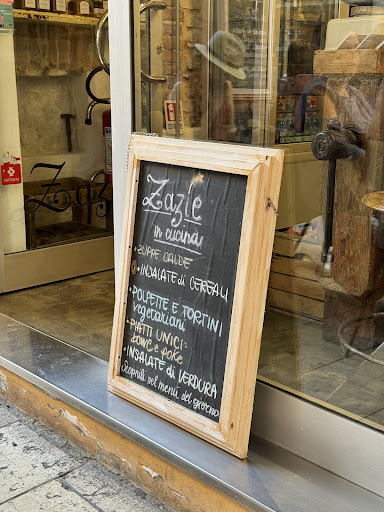 Zazie
in cucina
• ZUPPE CALDE
• INSALATE di CEREALI
• POLPETTE E TORTINI
vegetariani
• PIATTI UNICI:
bowl e poke
• INSALATE di VERDURA
Scoprili nel menù del giorno